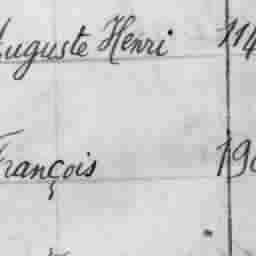 Auguste Henri 114
François 190